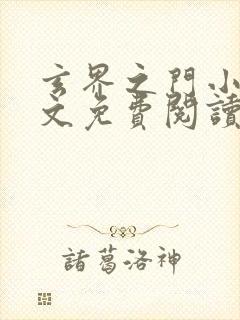 玄界之門小
文免費閱讀
諸葛洛神